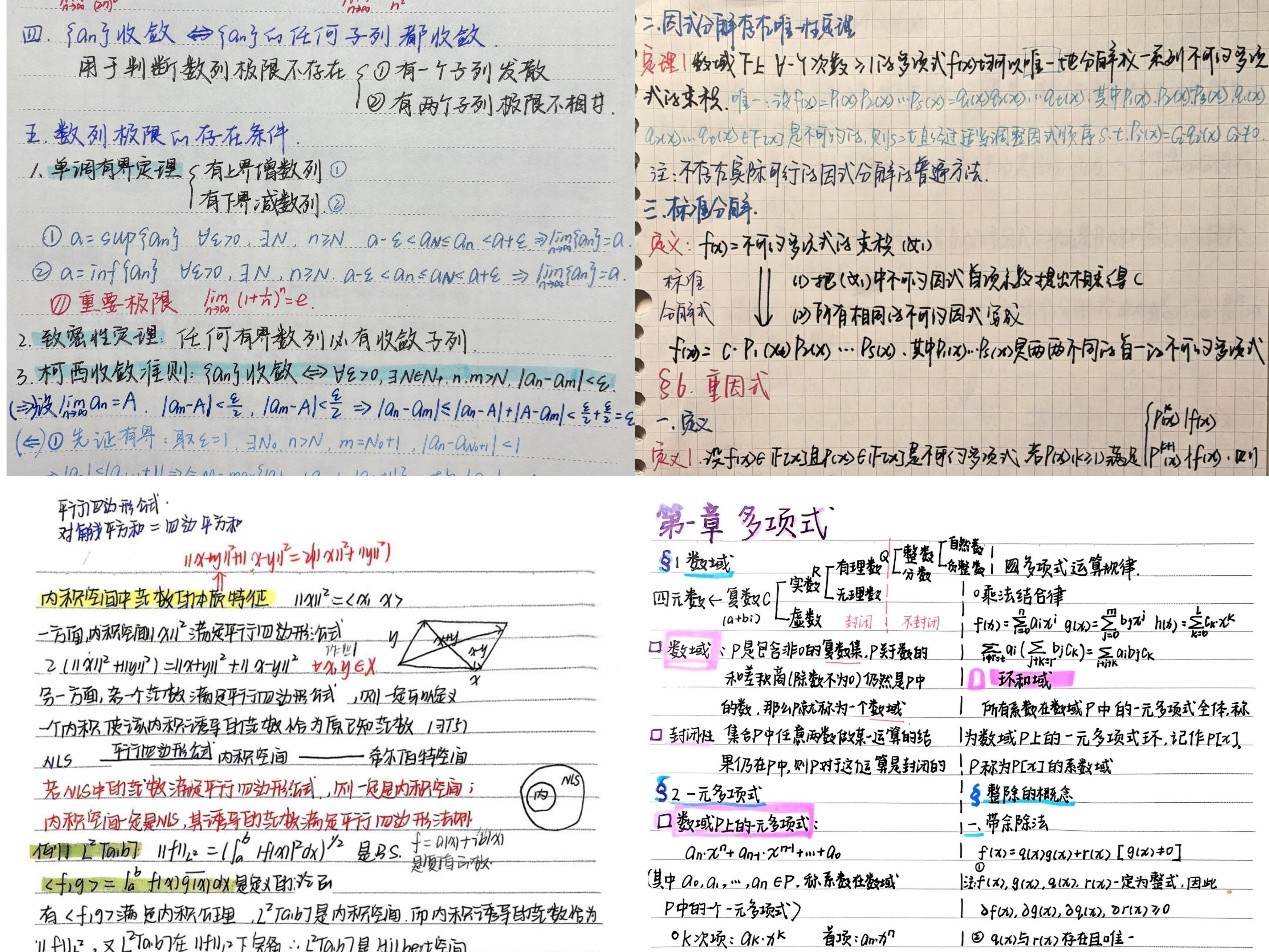 四. {an}收敛 ⇔ {an}的任何子列都收敛.
用于判断数列极限不存在 { ① 有一个子列发散
② 有两个子列极限不相等.
五. 数列极限的存在条件.
1. 单调有界定理 { 有上界增数列 ①
有下界减数列 ②
① a=sup{an} ∀ε>0, ∃N, n≥N a-ε<aN≤an<a+ε ⇒ lim n→∞ {an}=a.
② a=inf{an} ∀ε>0, ∃N, n≥N. a-ε<an≤aN<a+ε ⇒ lim n→∞ {an}=a.
① 重要极限 lim n→∞ (1+1/n)^n=e.
2. 致密性定理: 任何有界数列必有收敛子列.
3. 柯西收敛准则: {an}收敛 ⇔ ∀ε>0, ∃N∈N+, n.m>N, |an-am|<ε.
(⇒)设 lim n→∞ an=A. |am-A|<ε/2, |am-A|<ε/2 ⇒ |an-am|≤|an-A|+|A-am|<ε/2+ε/2=ε
(⇐) ① 先证有界: 取ε=1, ∃N0, n>N, m=N0+1, |an-aN0+1|<1
二.因式分解存在唯一性定理
定理1 数域F上 ∀一个次数≥1的多项式f(x)均可以唯一地分解成一系列不可约多项
式的乘积. 唯一: 设f(x)=P1(x)P2(x)…Ps(x)=q1(x)q2(x)…qt(x). 其中P1(x).P2(x)…Ps(x).q1(x)
q2(x)…qt(x)∈F[x]是不可约的, 则s=t且经过适当调整因式顺序 s.t. Pi(x)=Ciqi(x) Ci≠0.
注: 不存在实际可行的因式分解的普遍方法.
三.标准分解.
定义: f(x)=不可约多项式的乘积
标准 (1) 把 中不可约因式首项系数提出相乘得C
分解式 (2) 所有相同的不可约因式写成
f(x)=C·P1(x)P2(x)…Ps(x). 其中P1(x)…Ps(x)是两两不同的首一的不可约多项式
§6. 重因式
一. 定义
定义1. 设f(x)∈F[x]且P(x)∈F[x]是不可约多项式 若P(x)(k≥1)满足 { P^k(x)|f(x)
P^{k+1}(x)∤f(x). 则
平行四边形公式.
对角线平方和=四边平方和
||x+y||²+||x-y||²=2(||x||²+||y||²)
内积空间中范数的本质特征 ||x||²=<x,x>
一方面,内积空间||x||²满足平行四边形公式
2(||x||²+||y||²)=||x+y||²+||x-y||² ∀x,y∈X
y x+y x-y x
另一方面,若一个范数满足平行四边形公式,则一定可以定义
一个内积使该内积诱导的范数恰为原已知范数
NLS 平行四边形公式 内积空间 —— 希尔伯特空间
若NLS中的范数满足平行四边形公式,则一定是内积空间;
内积 NLS
内积空间一定是NLS,其诱导的范数满足平行四边形法则
例1 L²[a,b] ||f||L²=(∫_a^b |f(x)|²dx)^{1/2} 是B.S. f=a(x)+ib(x)
<f,g>=∫_a^b f(x)g(x)dx是定义的
有<f,g>满足内积公理, L²[a,b]是内积空间.而内积诱导的范数恰为
||f||L², 又L²[a,b]在||f||L²下完备∴L²[a,b]是Hilbert空间
第一章 多项式
§1 数域
四元数←复数C (a+bi) 实数R 虚数 有理数Q 无理数 整数 分数 自然数 负整数
封闭 不封闭
数域: P是包含非0的复数集,P关于数的
和差积商(除数不为0)仍然是P中
的数,那么P就称为一个数域
封闭性 集合P中任意两数做某一运算的结
果仍在P中,则P对于这个运算是封闭的
§2 一元多项式
数域P上的一元多项式:
an·x^n+an-1·x^{n-1}+…+a0
(其中a0,a1,…,an∈P.称系数在数域
P中的一个一元多项式)
○K次项: ak·x^k 首项: an·x^n
多项式运算规律.
○乘法结合律
f(x)=Σ_{i=0}^n aix^i g(x)=Σ_{j=0}^m bjx^j h(x)=Σ_{k=0}^l ck·x^k
环和域
所有系数在数域P中的一元多项式全体,称
为数域P上的一元多项式环,记作P[x].
P称为P[x]的系数域
§ 整除的概念
一. 带余除法
f(x)=q(x)g(x)+r(x) [g(x)≠0]
注:①f(x),g(x),q(x),r(x)一定为整式,因此
∂f(x),∂g(x),∂q(x),∂r(x)≥0
② q(x)与r(x)存在且唯一